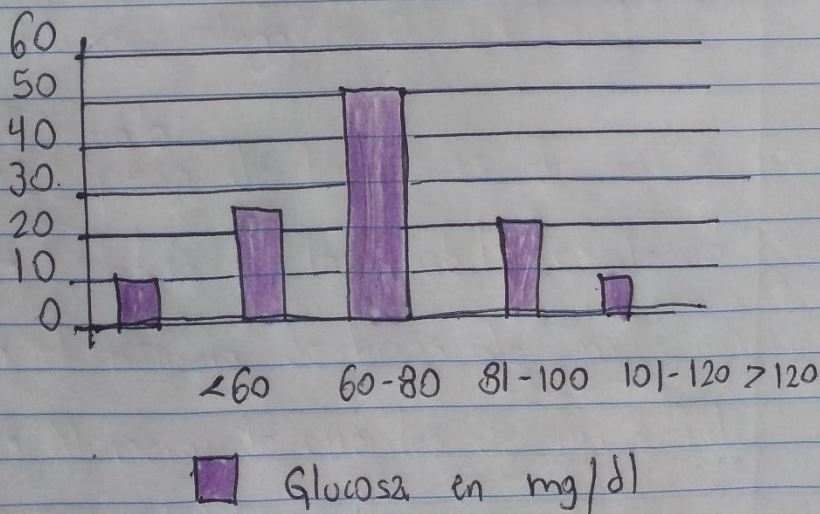 60
50
40
30.
20
10
0
<60 60-80 81-100 101-120 >120
Glucosa en mg/dl